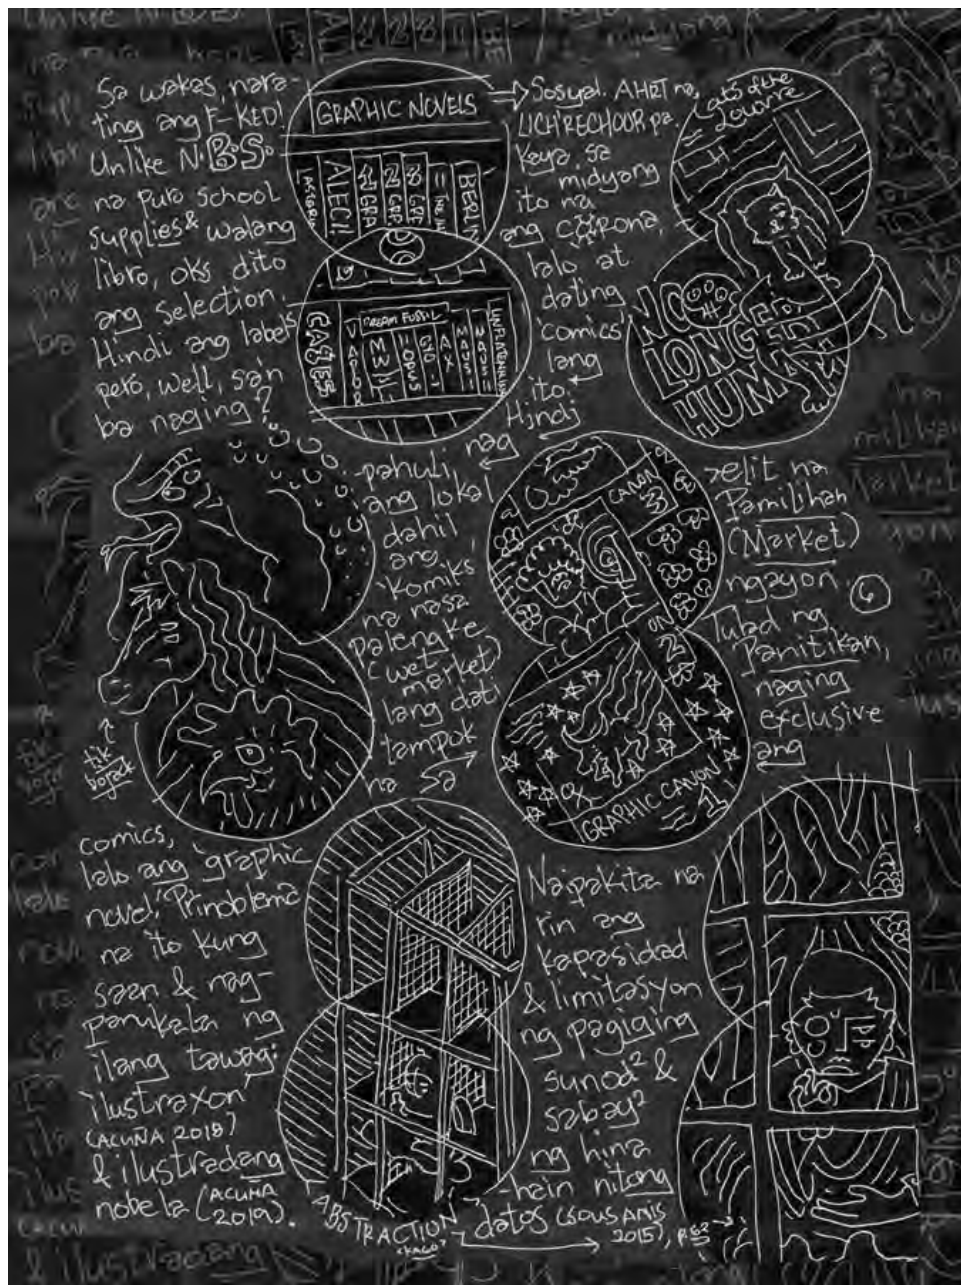 Sa wakas, nara-
ting ang F-KED!
Unlike N.B.S.
na puro school
supplies & walang
libro, oks dito
ang selection.
Hindi ang labels
pero, well, san
ba naging?
GRAPHIC NOVELS
ALECK!
BERLIN
CAGES
VAPOR
DREAM FOSSIL
MW
MAUS II
MAUS I
→ Sosyal. AHRT na,
LICHIRECHOOR pa.
Kaya, sa
midyang
ito na
ang CORONA,
lalo at
dating
'comics'
lang
ito.
Hindi
nag
pahuli,
ang lokal
dahil
ang
'komiks'
na nasa
palengke
(wet
market)
lang dati
tampok
na sa
Cats of the
Louvre
NO
LONGER
HUMAN
tik
bojack
CANON
3
ON
2
GRAPHIC CANON
1
elit na
Pamilihan
(Market)
ngayon. 6
Tulad ng
Panitikan,
naging
exclusive
ang
comics,
lalo ang 'graphic
novel.' Prinoblema
na ito kung
saan & nag-
panukala ng
ilang tawag:
'ilustraxon'
(ACUÑA 2018)
& ilustradang
nobela (ACUÑA
2019).
ABSTRACTION
Naipakita na
rin ang
kapasidad
& limitasyon
ng pagiging
sunod² &
sabay²
ng hina
-hain nitong
datos (SOUSANIS
2015), p.63